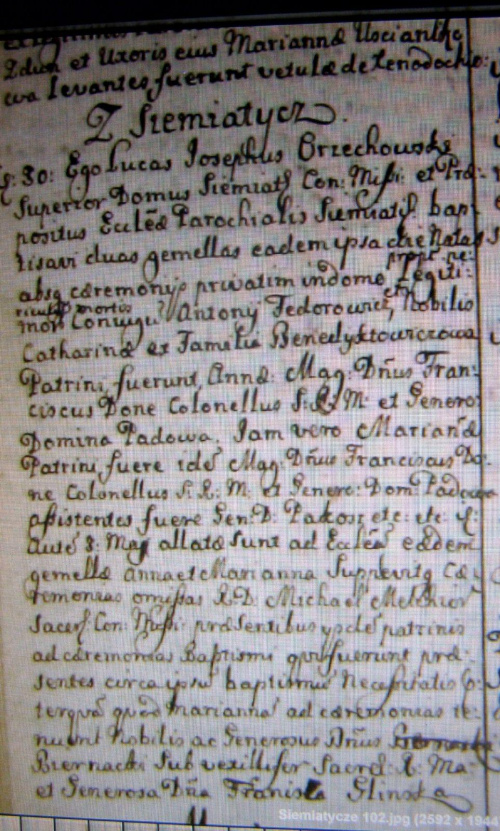 Zdun et Uxoris eius Mariannæ Uscianthe
cwa levantes fuerunt vetulæ de Xenodochio:
Z Siemiatycz.
30: Ego Lucas Josephus Orzechowski
Superior Domus Siemiatÿ Con: Missi: et Præ-
positus Eccleæ Parochialis Siemiatÿ bap-
tisavi duas gemellas eadem ipsa die natas
propt: pe:
absq cæremonijs privatim in domo Legiti:
riculũ mortis
mor Conjugũ Antonij Fedorowicz, et Nobilis
Catharinæ ex Familia Benedyktowiczowa
Patrini fuerunt Annæ: Mag: Dñus Fran-
ciscus Done Colonellus S: R: M: et Genero:
Domina Padowa. Jam vero Mariannæ
Patrini fuere idẽ Mag: Dñus Franciscus Do-
ne Colonellus S: R: M: et Genero: Dom: Padowa
assistentes fuere Gen: D: Pakosz etc: etc:
Autẽ 8: Maij allatæ sunt ad Eccleã eædem
gemellæ Anna et Marianna Supplevitq Cæ-
remonias omissas R: D: Michael Melchior
Sacerd: Con: Missi: præsentibus ijsdẽ patrinis
ad cæremonias Baptismi qui fuerunt præ-
sentes circa ipsũ baptismũ necessitatis
præterquã quod Mariannã ad cæremonias te-
nuerunt Nobilis ac Generosus Dñus
Biernacki Sub vexillifer Sacræ: R: Ma:
et Generosa Dña Franiska Glinska
Siemiatycze 102.jpg (2592 x 1944